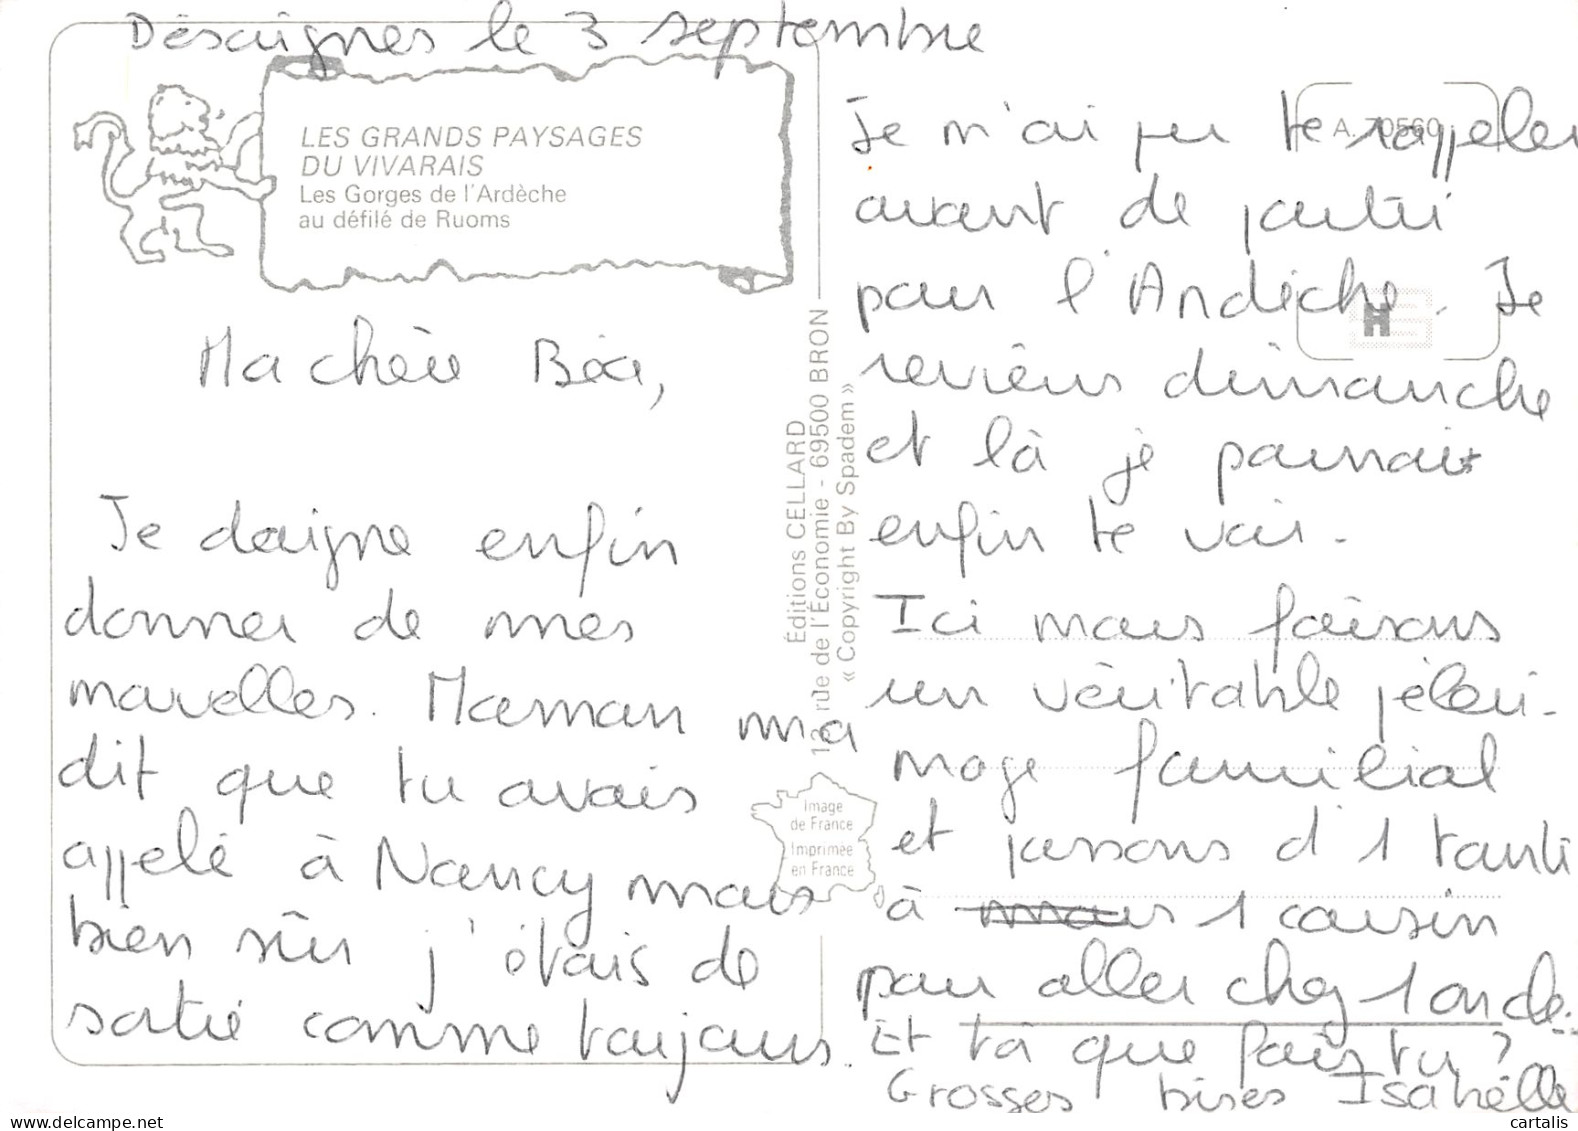 Désaignes le 3 septembre
LES GRANDS PAYSAGES
DU VIVARAIS
Les Gorges de l'Ardèche
au défilé de Ruoms
Ma chère Béa,
Je daigne enfin
donner de mes
nouvelles. Maman m'a
dit que tu avais
appelé à Nancy mais
bien sûr j'étais de
sortie comme toujours.
Éditions CELLARD
rue de l'Économie - 69500 BRON
« Copyright By Spadem »
Image
de France
Imprimée
en France
A. 70560
Je n'ai pu te rappeler
avant de partir
pour l'Ardèche. Je
reviens dimanche
et là je pourrais
enfin te voir.
Ici nous faisons
un véritable péleri-
nage familial
et passons d'1 tante
à nous 1 cousin
pour aller chez 1 oncle...
Et toi que fais tu ?
Grosses bises Isabelle
cartalis